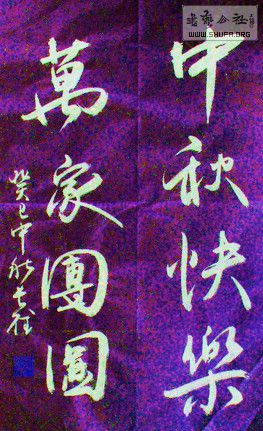 中秋快樂
萬家團圓
癸巳中秋
書法公社
WWW.SHUFA.ORG